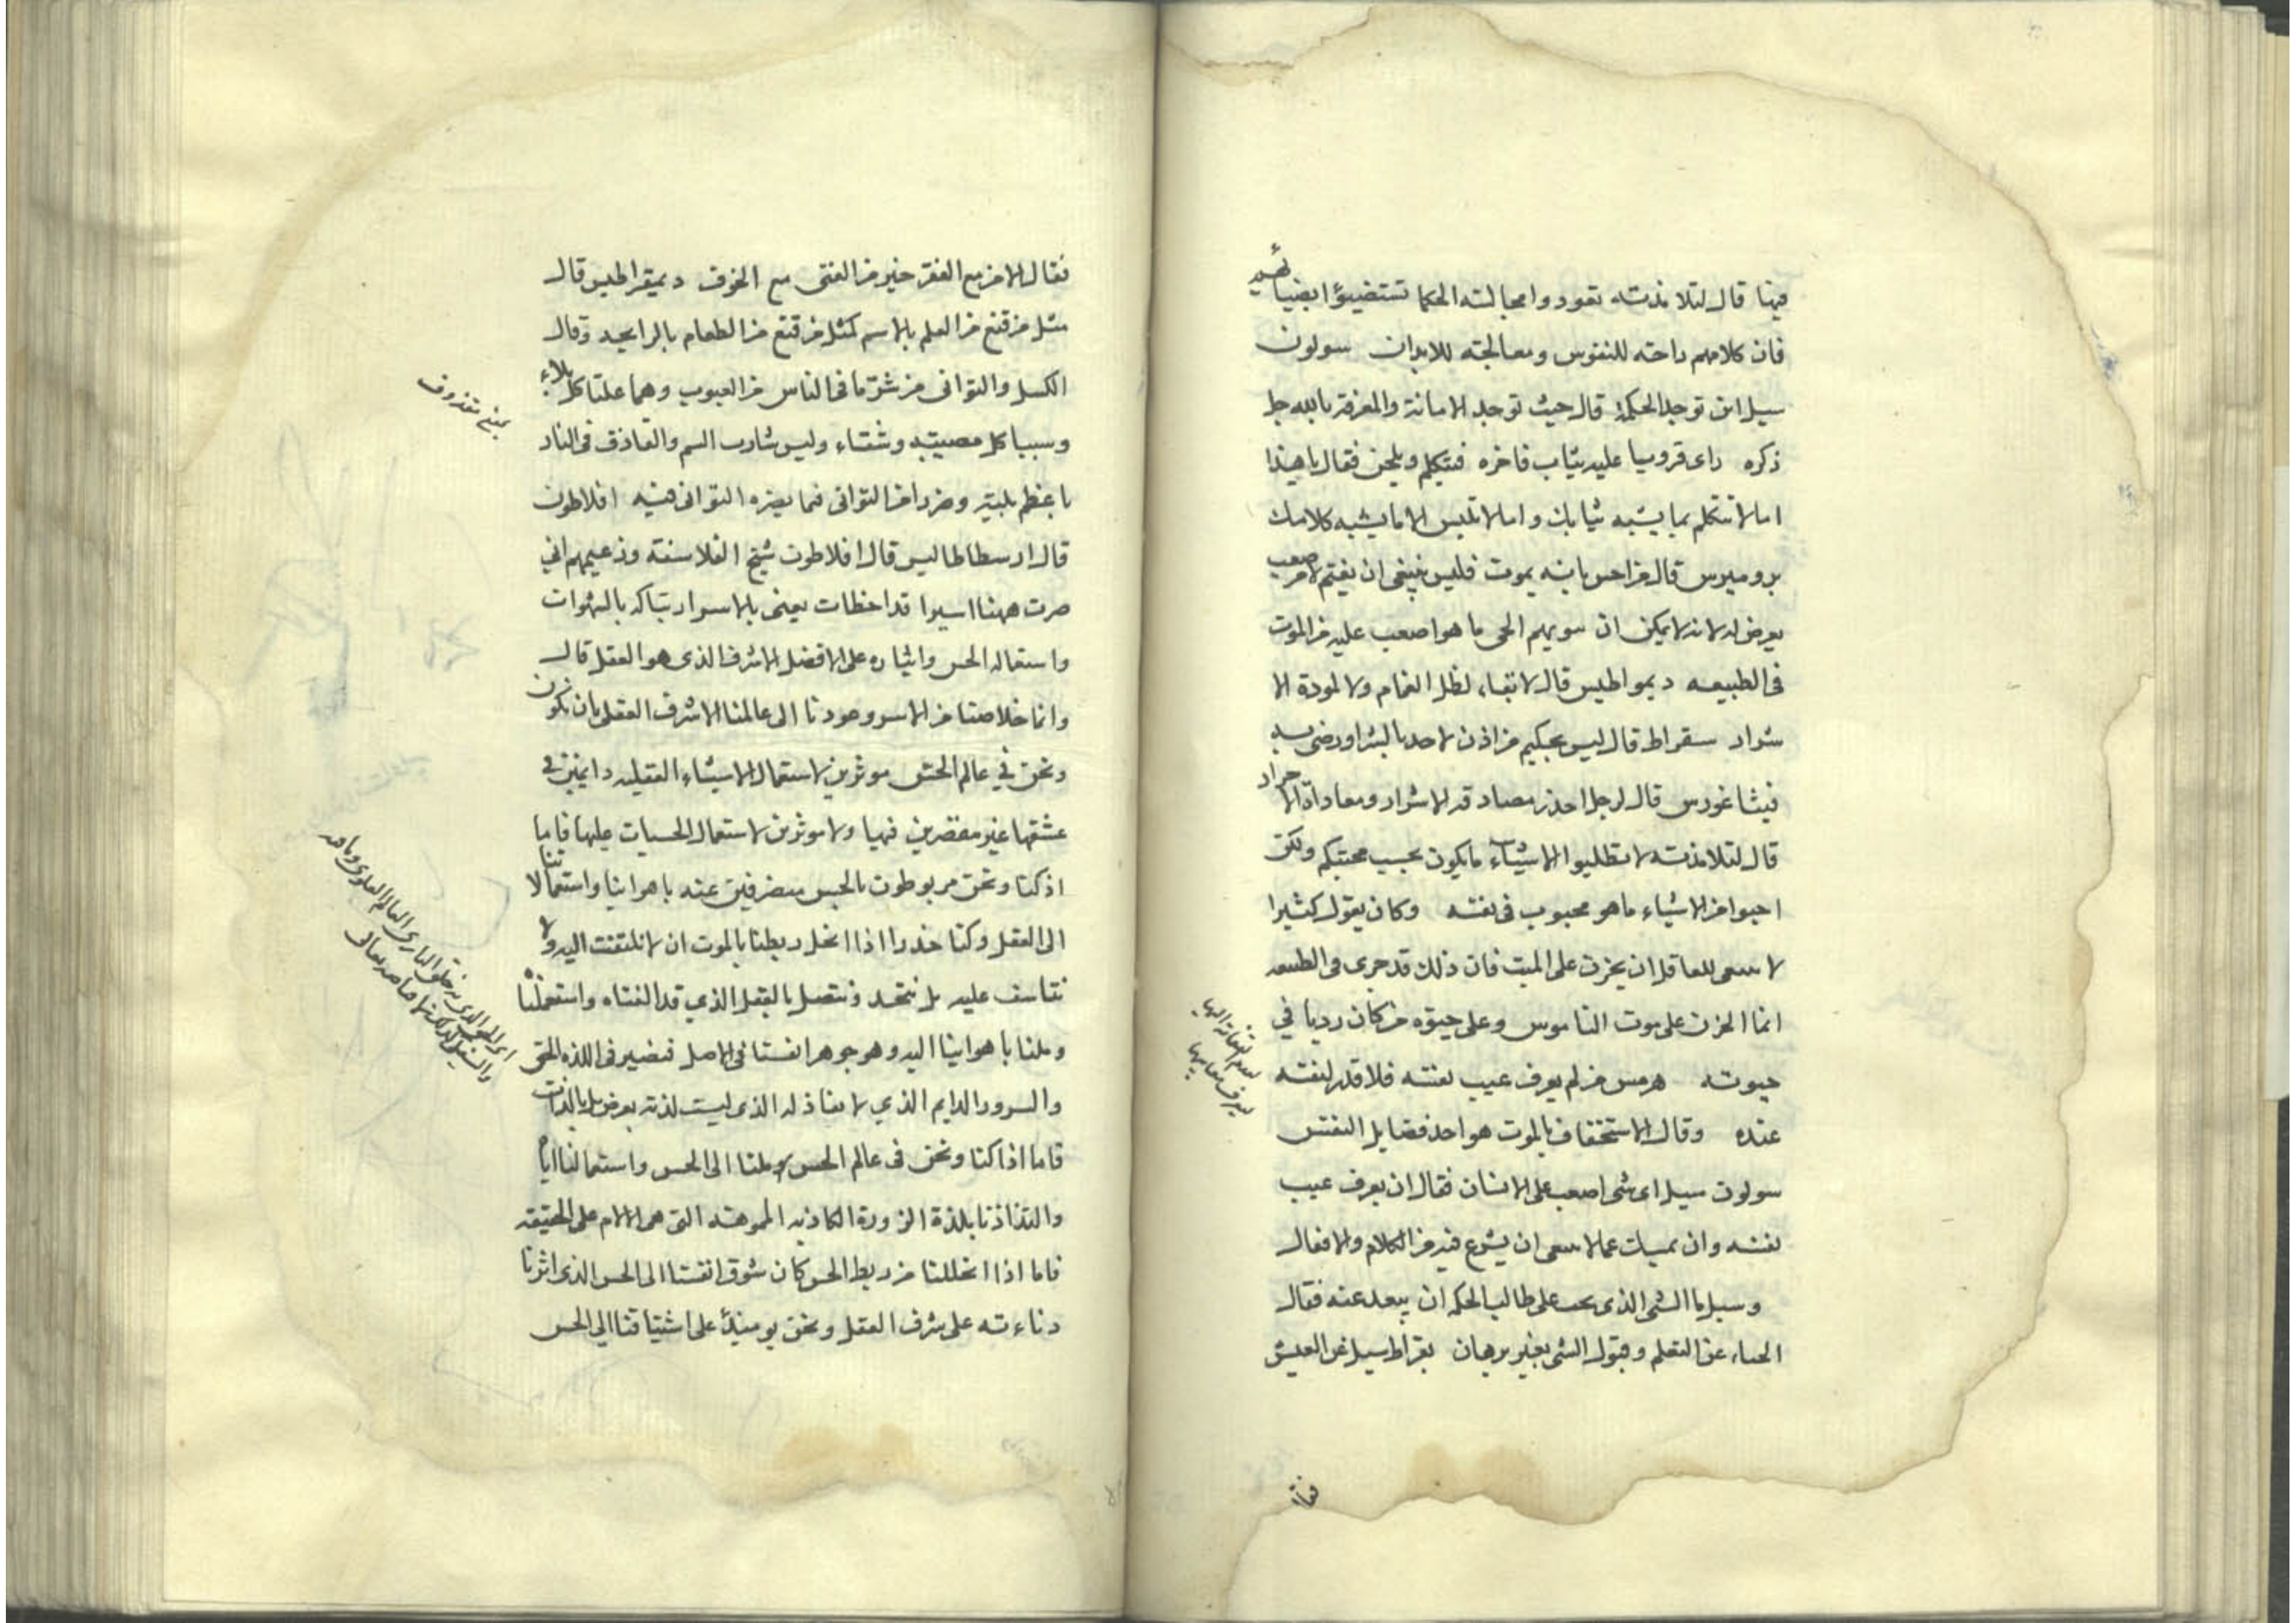 فيها قال لتلامذته تعودوا مجالسه الحكما تستضيؤا بضيائهم
فان كلامهم راحه للنفوس ومعالجته للابدان سولون
سيل اين توجد الحكمة قال حيث توجد الامانة والمعرفة بالله جل
ذكره راى قرويا عليه ثياب فاخره فتكلم ويلحن فقال يا هذا
اما لا تتكلم بما يشبه ثيابك واما لا تلبس الا ما يشبه كلامك
قال من احس بانه يموت فليس ينبغى ان يغتم لامر صعب
يعرض له لانه لا يمكن ان الحى ما هو اصعب عليه من الموت
فى الطبيعه ديمواطيس قال لا بقاء لظل الغمام ولا لمودة الا
شرار سقراط قال ليس بحكيم من اذن لاحد بالشر او رضى به
فيثاغورس قال لرجل احذر مصادقه الاشرار ومعاداة الاحرار
قال لتلامذته لا تطلبوا الاشياء ما يكون بحسب محبتكم ولكن
احبوا من الاشياء ما هو محبوب فى نفسه وكان يقول كثيرا
لا ينبغى للعاقل ان يحزن على الميت فان ذلك قد جرى فى الطبيعه
انما الحزن على موت الناموس وعلى حيوه من كان رديا في
حيوته هرمس من لم يعرف عيب نفسه فلا قدر لنفسه
عنده وقال الاستخفاف بالموت هو احد فضايل النفس
سولون سيل اى شى اصعب على الانسان فقال ان يعرف عيب
نفسه وان يمسك عما لا ينبغى ان يشرع فيه من الكلام والافعال
وسيل ما الشى الذى يجب على طالب الحكمه ان يبعد عنه فقال
الحياء عن التعلم وقبول الشى بغير برهان بقراط سيل عن العيش
فقال
فقال الامن مع الفقر خير من الغنى مع الخوف ديمقراطيس قال
مثل من قنع من العلم بالاسم كمثل من قنع من الطعام بالرايحه وقال
الكسل والتوانى من شر ما فى الناس من العيوب وهما علتا كل بلاء
وسببا كل مصيبه وشقاء وليس شارب السم والقاذف فى النار
باعظم بليته وضررا من التوانى فما يضره التوانى فيه افلاطون
قال ارسطاطاليس قال افلاطون شيخ الفلاسفة وزعيمهم اني
صرت ههنا اسيرا قد اخطات يعنى بالاسر ارتباكه بالشهوات
واستعماله الحس وايثاره على الافضل الاشرف الذى هو العقل قال
وانما خلاصنا من الاسر وعودنا الى عالمنا الاشرف العقل بان نكون
ونحن في عالم الحس موثرين لاستعمال الاشياء العقليه دايمين في
عشقها غير مقصرين فيها ولا موثرين لاستعمال الحسيات عليها فاما
اذ كنا ونحن مربوطون بالحس منصرفين عنه باهوائنا واستعمالاتنا
الى العقل وكنا حذرا اذا انحل ربطنا بالموت ان لا نلتفت اليه ولا
نتاسف عليه بل نتحد ونتصل بالعقل الذي قد الفناه واستعملناه
وملنا باهوائنا اليه وهو جوهر انفسنا فى الاصل فنصير فى اللذه الحق
والسرور الدايم الذي لا نفاذ له الذى ليست لذته بعرض بل بالذات
فاما اذا كنا ونحن فى عالم الحس وملنا الى الحس واستعمالنا اياه
والتذاذنا بلذة الزورة الكاذبه المموهه التى هى الالام على الحقيقه
فاما اذا انحللنا من ربط الحس كان شوق انفسنا الى الحس الذى اثرنا
دناءته على شرف العقل ونحن يومئذ على اشتياقنا الى الحس